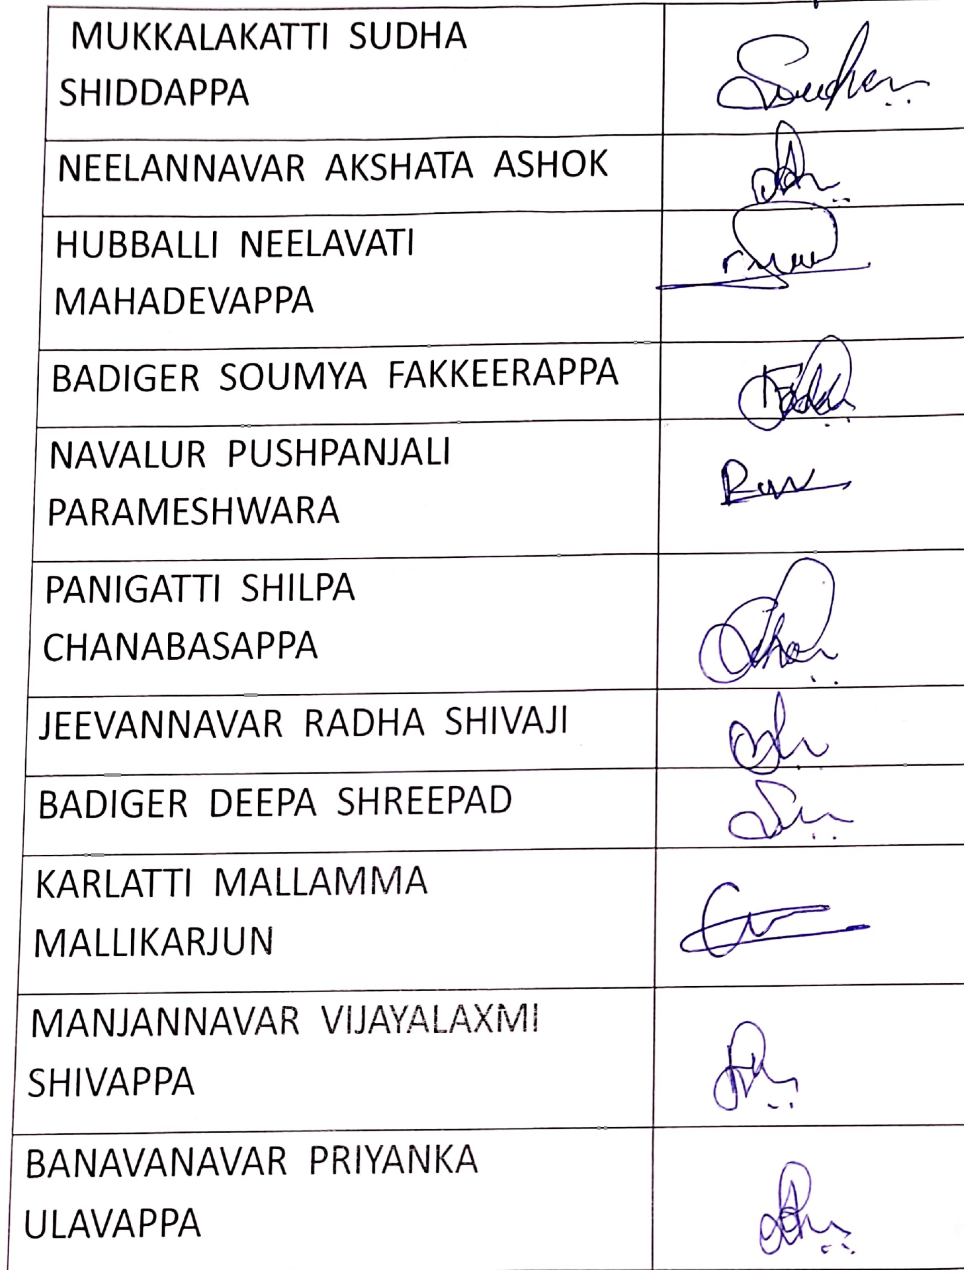 MUKKALAKATTI SUDHA
SHIDDAPPA
Sudha
NEELANNAVAR AKSHATA ASHOK
HUBBALLI NEELAVATI
MAHADEVAPPA
BADIGER SOUMYA FAKKEERAPPA
NAVALUR PUSHPANJALI
PARAMESHWARA
PANIGATTI SHILPA
CHANABASAPPA
JEEVANNAVAR RADHA SHIVAJI
BADIGER DEEPA SHREEPAD
KARLATTI MALLAMMA
MALLIKARJUN
MANJANNAVAR VIJAYALAXMI
SHIVAPPA
BANAVANAVAR PRIYANKA
ULAVAPPA